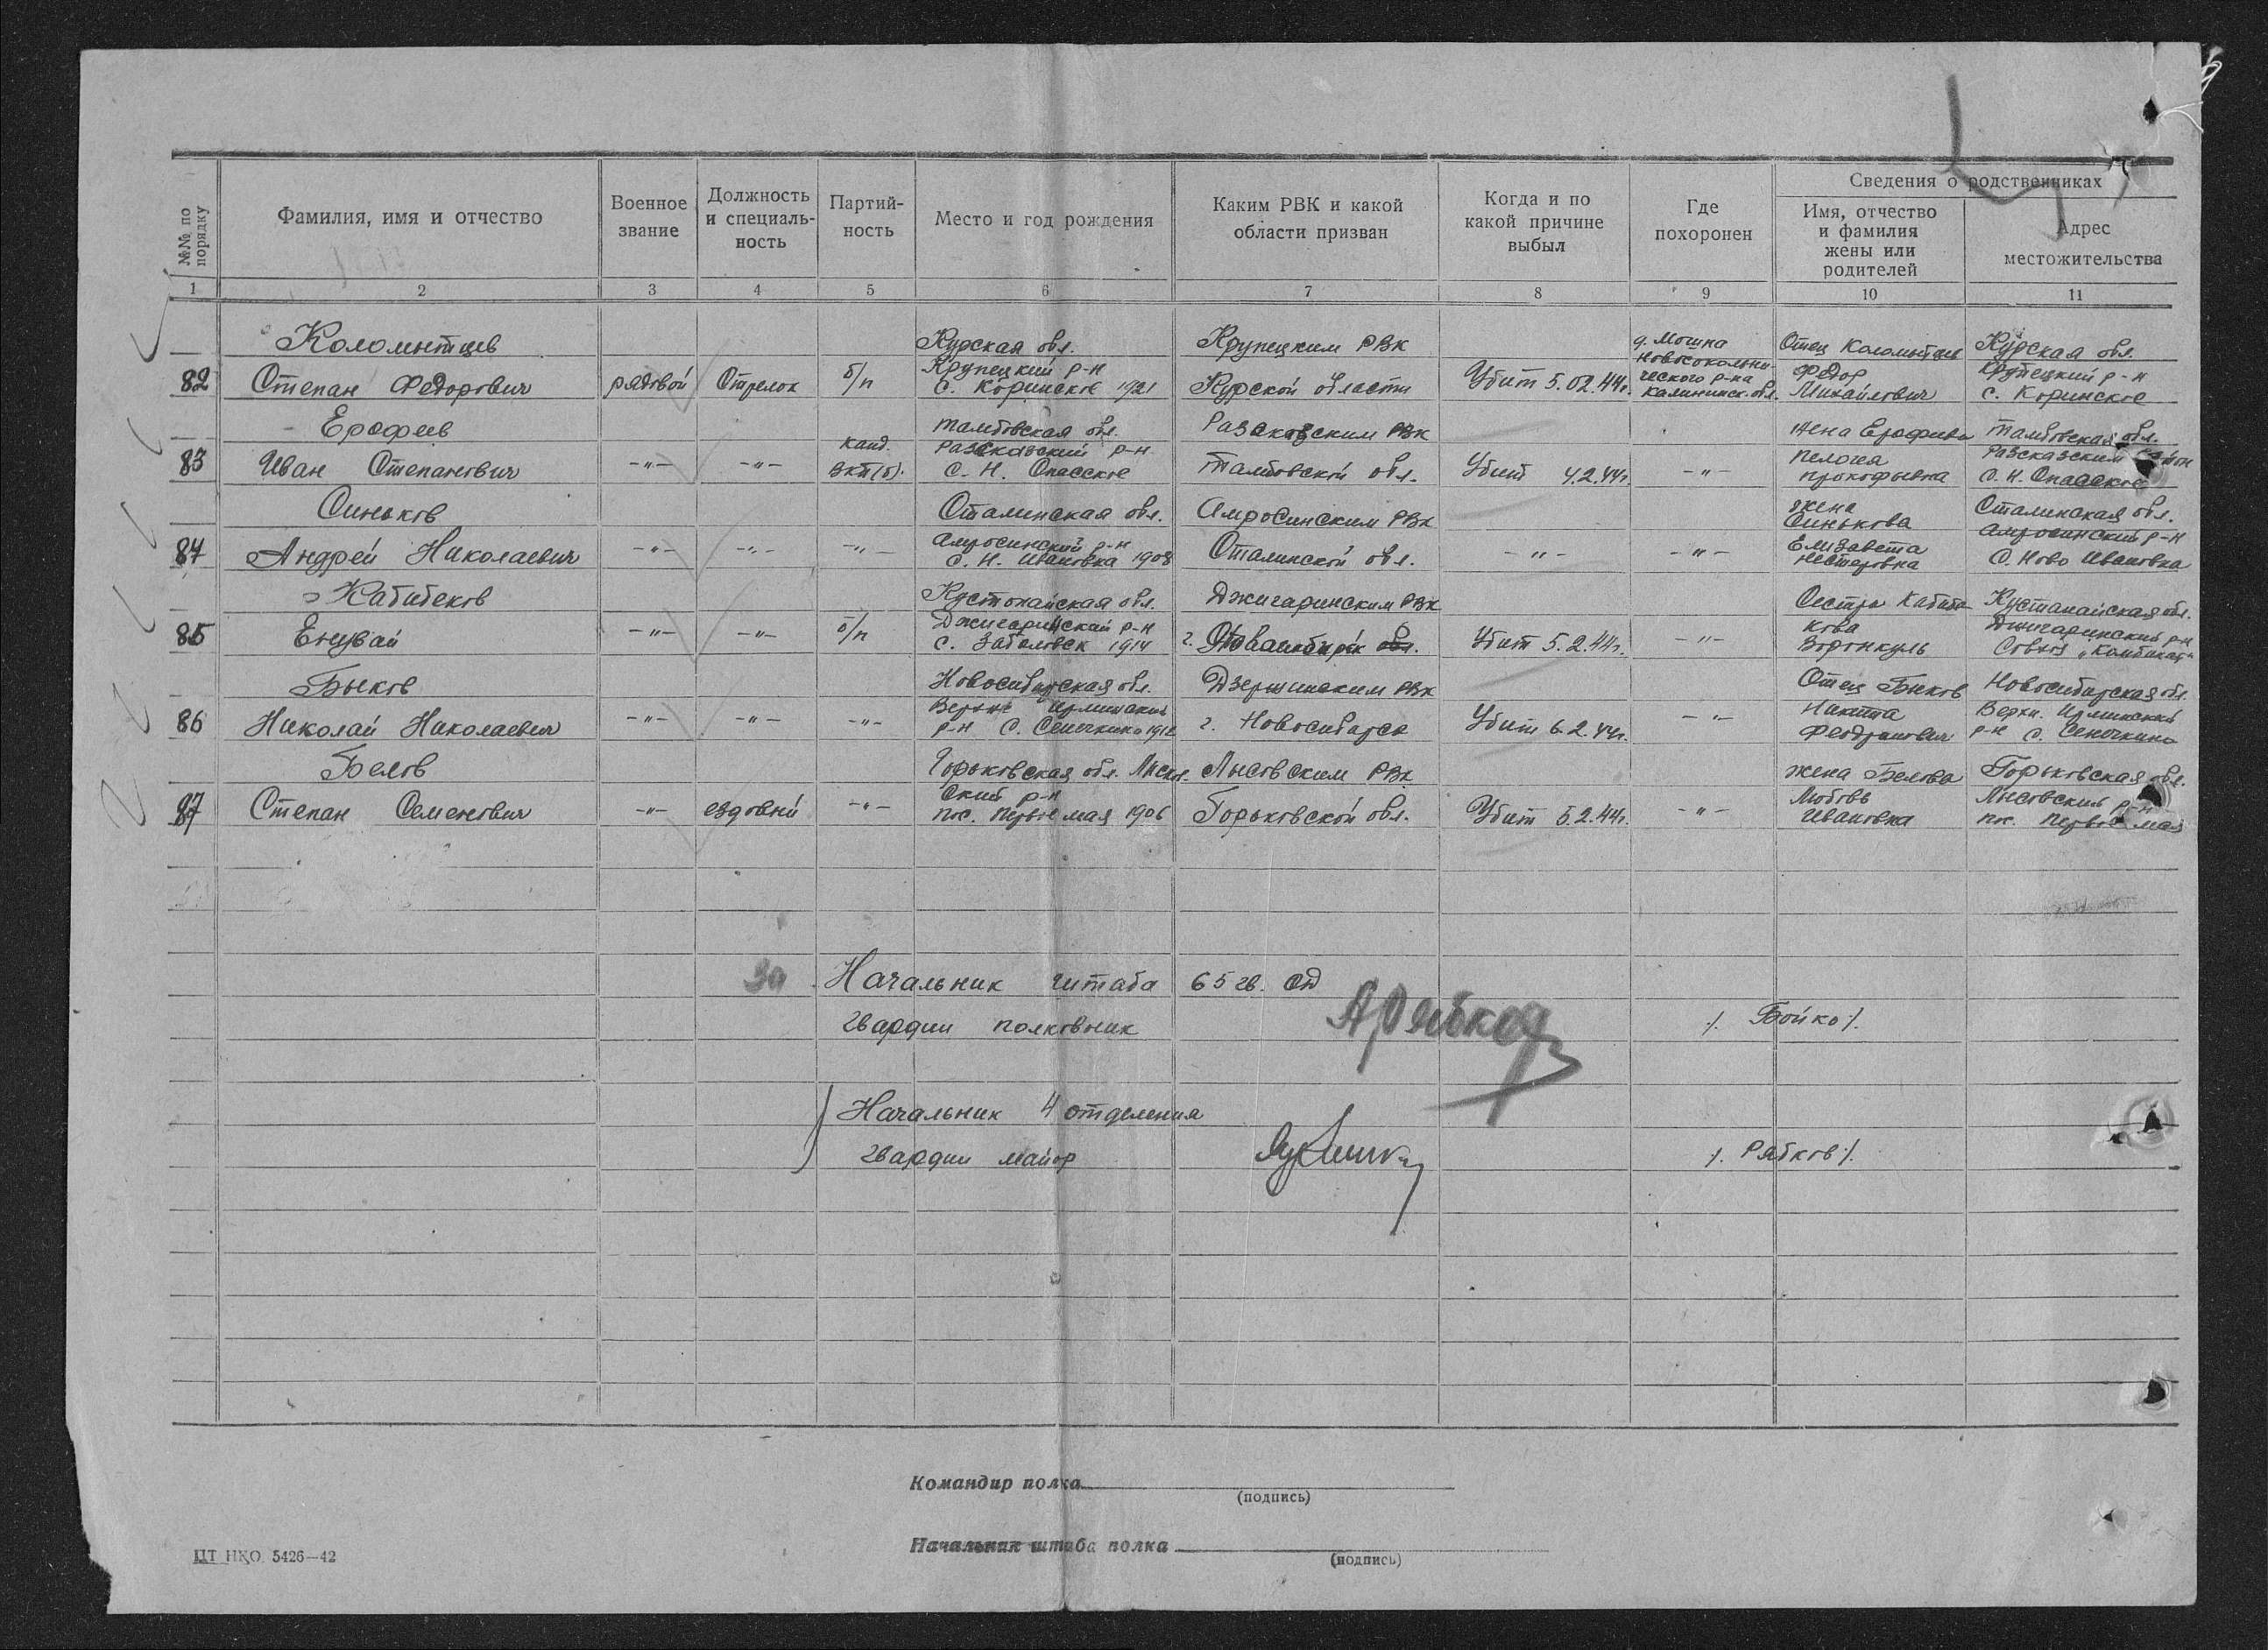 №№ по порядку
Фамилия, имя и отчество
Военное звание
Должность и специаль-ность
Партий-ность
Место и год рождения
Каким РВК и какой области призван
Когда и по какой причине выбыл
Где похоронен
Сведения о родственниках
Имя, отчество и фамилия жены или родителей
Адрес местожительства
1 2 3 4 5 6 7 8 9 10 11
Коломытцев Курская обл. Крупецким РВК д. Мошна Отец Коломытцев Курская обл.
82 Степан Федорович рядовой Стрелок б/п Крупецкий р-н с. Коринское 1921 Курской области Убит 5.02.44г. Новосокольни-ческого р-на Калининск. обл. Федор Михайлович Крупецкий р-н с. Коринское
Ерофеев Тамбовская обл. Разсказским РВК жена Ерофеева Тамбовская обл.
83 Иван Степанович -"- -"- канд. ВКП(б). Разсказский р-н С. Н. Спасское Тамбовской обл. Убит 4.2.44г. -"- Пелогея Прокофьевна Разсказский С. Н. Спасское
Синьков Сталинская обл. Амросинским РВК жена Синькова Сталинская обл.
84 Андрей Николаевич -"- -"- -"- Амросинский р-н С. Н. Ивановка 1908 Сталинской обл. -"- -"- Елизавета Нестеровна Амросинский р-н С. Ново Ивановка
Кабибеков Кустонайская обл. Джигаринским РВК Сестра Кабибе- Кустанайская обл.
85 Енувай -"- -"- б/п Джигаринский р-н с. Забеловск 1914 г. Убит 5.2.44г. -"- кова Джигаринский р-н Совхоз
Быков Новосибирская обл. Дзержинским РВК Отец Быков Новосибирская обл.
86 Николай Николаевич -"- -"- -"- Верхне Ирминский р-н С. Сеночкино 1912 г. Новосибирск Убит 6.2.44г. -"- Никита Верхн. Ирминский р-н С. Сеночкино
Белов Горьковская обл. Лысков- Лысовским РВК жена Белова Горьковская обл.
87 Степан Семенович -"- ездовый -"- ский р-н пос. Первое мая 1906 Горьковской обл. Убит 5.2.44г. -"- Любовь Ивановна Лысовский р-н пос. Первое мая
За Начальник штаба 65 гв. СД
гвардии полковник АРябков /. Бойко ./.
Начальник 4 отделения
гвардии майор /. Рябков ./.
Командир полка
(подпись)
Начальник штаба полка
(подпись)
ЦТ НКО 5426—42